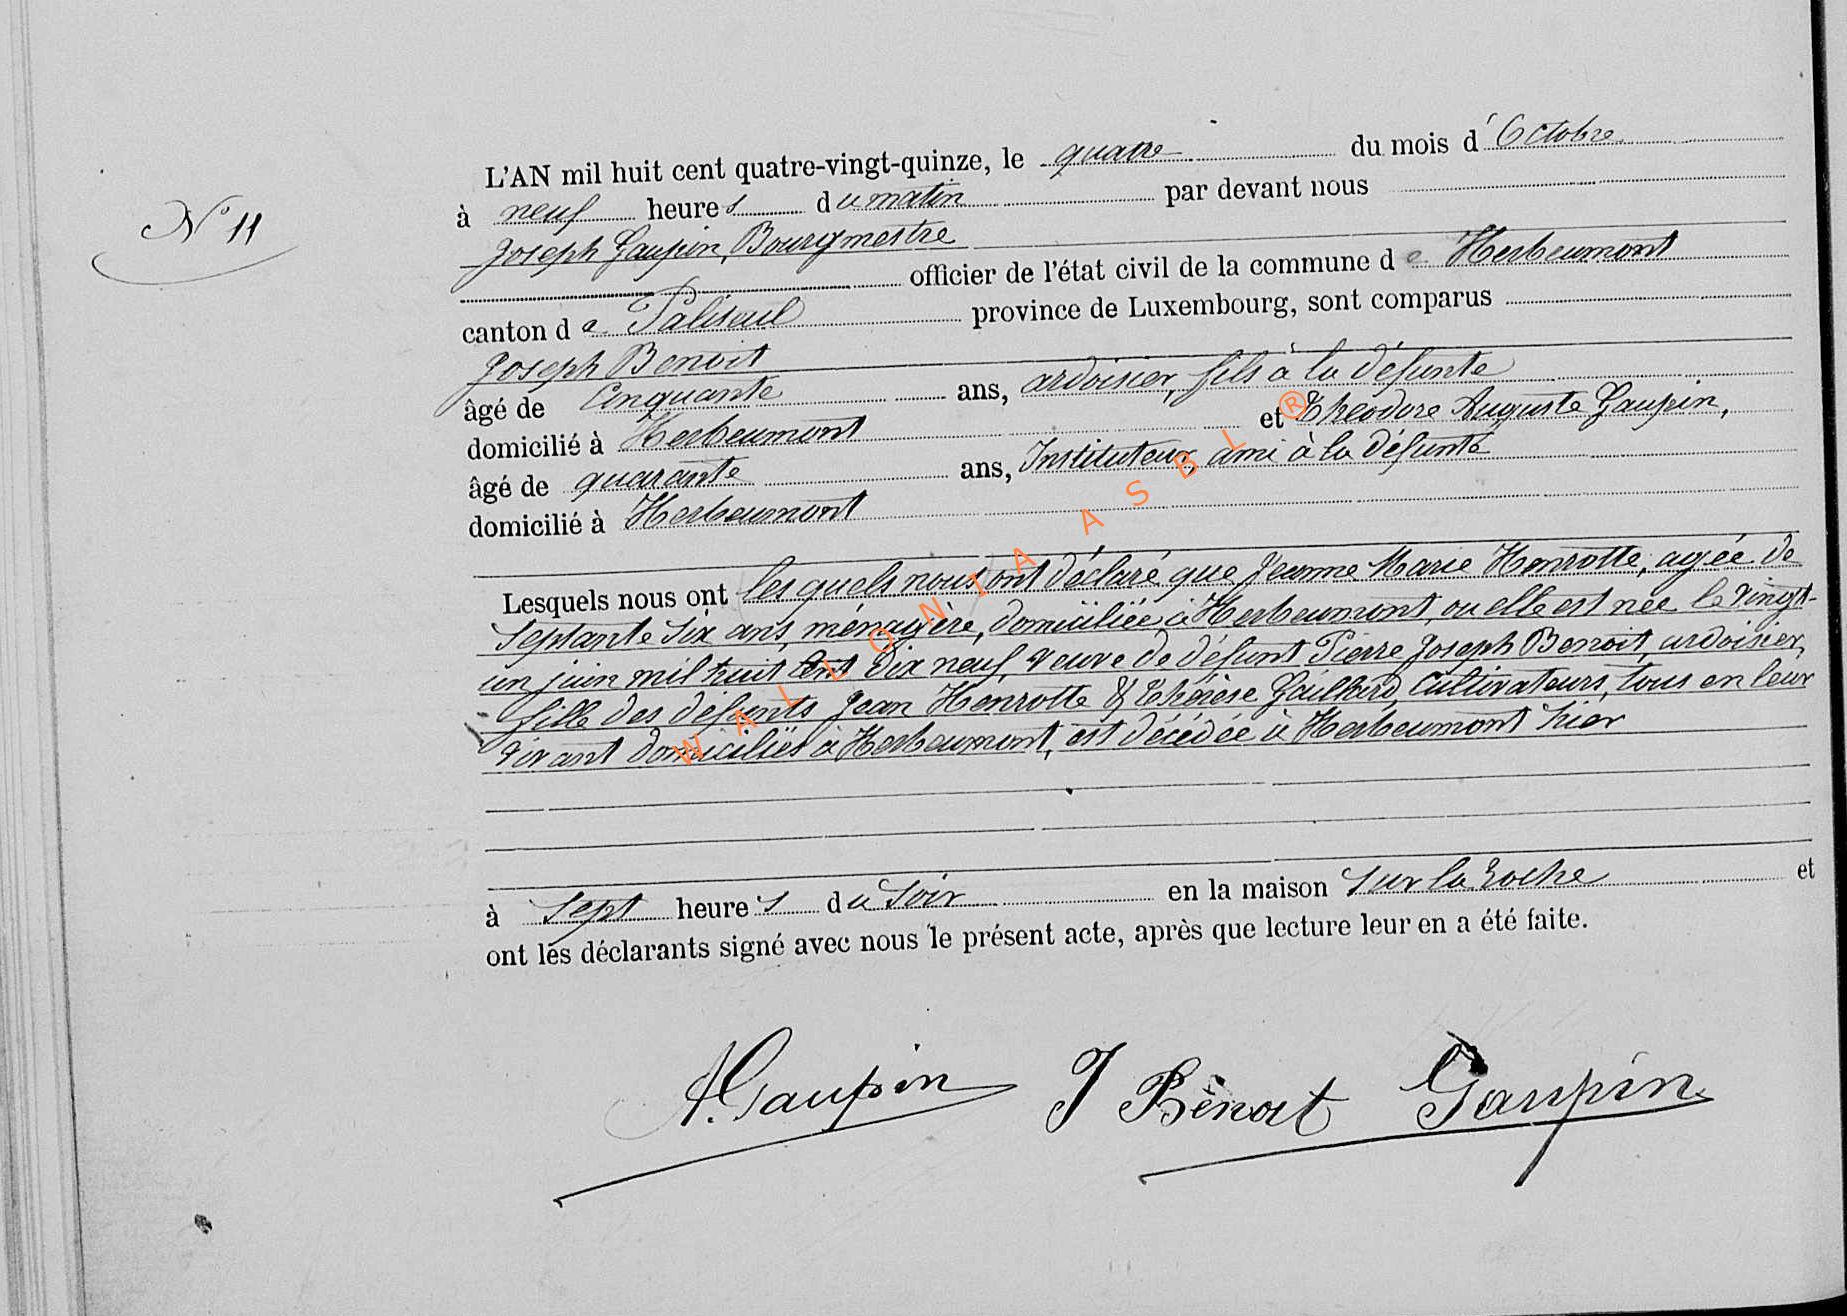 L'AN mil huit cent quatre-vingt-quinze, le quatre du mois d'Octobre
N° 11
à neuf heures du matin par devant nous
Joseph Gaupin, Bourgmestre
officier de l'état civil de la commune de Herbeumont
canton de Paliseul province de Luxembourg, sont comparus
Joseph Benoit
âgé de Cinquante ans, ardoisier, fils à la défunte
domicilié à Herbeumont et Théodore Auguste Gaupin,
âgé de quarante ans, Instituteur, ami à la défunte
domicilié à Herbeumont
Lesquels nous ont les quels nous ont déclaré que Jeanne Marie Henrotte, agée de
septante six ans, ménagère, domiciliée à Herbeumont, ou elle est née le vingt-
un juin mil huit cent dix neuf, veuve de défunt Pierre Joseph Benoit, ardoisier,
fille des défunts Jean Henrotte & Thérèse Gaillard, Cultivateurs, tous en leur
vivant domiciliés à Herbeumont, est décédée à Herbeumont hier
à sept heures du soir en la maison sur la Roche et
ont les déclarants signé avec nous le présent acte, après que lecture leur en a été faite.
A. Gaupin J Benoit Gaupin
WALLONIA ASBL ®